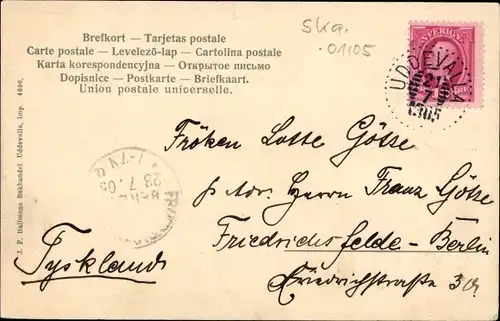 Brefkort — Tarjetas postale
Carte postale — Levelező-lap — Cartolina postale
Karta korespondencyjna — Открытое письмо
Dopisnice — Postkarte — Briefkaart.
Union postale universelle.
Skg.
01105
SVERIGE
UDDEVALLA
21
7
1905
J. F. Hallmans Bokhandel Uddevalla, Imp. 4696.
23.7.05
Fröken Lotte Götse
p. Adr. Herrn Franz Götse
Friedrichsfelde-Berlin
Friedrichstraße 3a
Tyskland